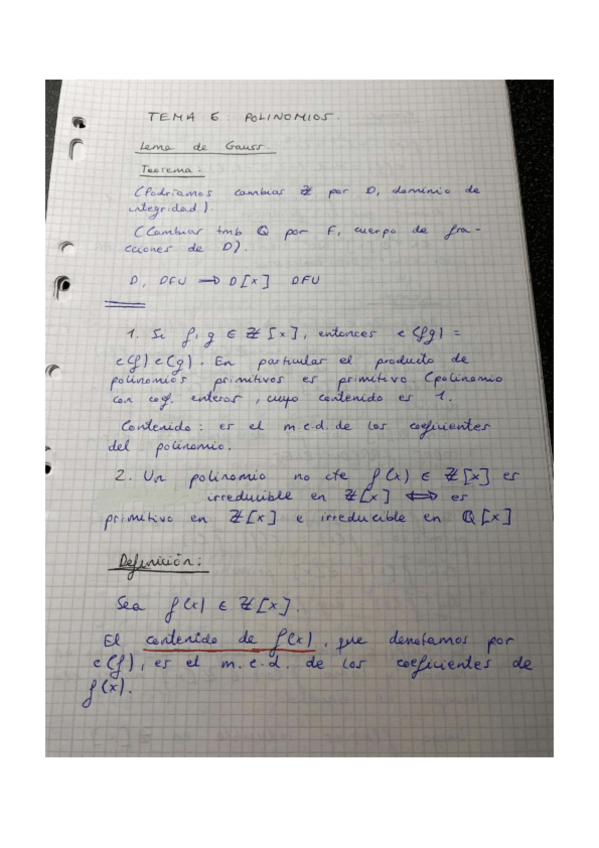 TEMA 6: POLINOMIOS.
Lema de Gauss.
Teorema:
(Podríamos cambiar ℤ por D, dominio de
integridad).
(Cambiar tmb ℚ por F, cuerpo de fra-
cciones de D).
D, DFU ⟹ D[x] DFU
1. Si f, g ∈ ℤ[x], entonces c(fg) =
c(f)c(g). En particular el producto de
polinomios primitivos es primitivo (polinomio
con coef. enteros, cuyo contenido es 1.
Contenido: es el m.c.d. de los coeficientes
del polinomio.
2. Un polinomio no cte f(x) ∈ ℤ[x] es
irreducible en ℤ[x] ⟺ es
primitivo en ℤ[x] e irreducible en ℚ[x]
Definición:
Sea f(x) ∈ ℤ[x].
El contenido de f(x), que denotamos por
c(f), es el m.c.d. de los coeficientes de
f(x).